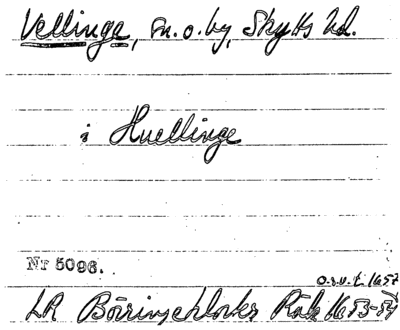 Vellinge, sn. o. by, Skytts hd.
i Huellinge
Nr 5096.
o.s.v. t. 1657
LR Börringeklosters Räk 1653-54